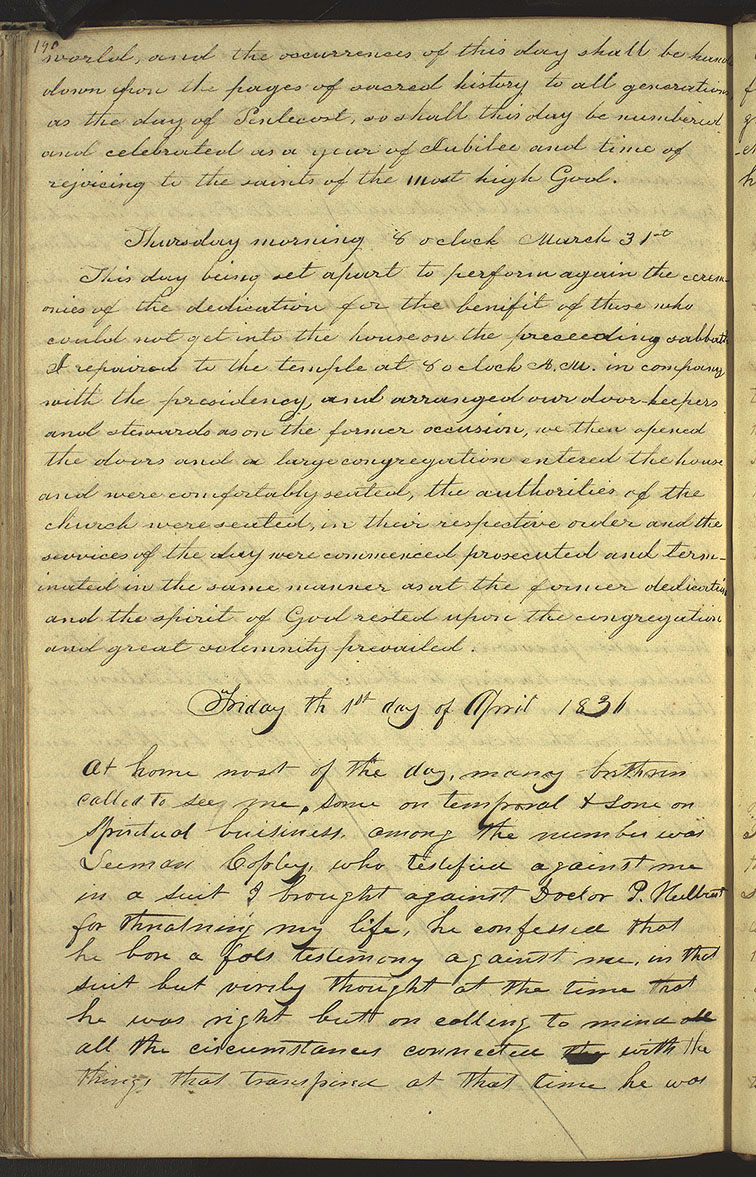 190
world, and the occurrences of this day shall be hand
down upon the pages of sacred history to all generations
as the day of Pentecost, so shall this day be numbered
and celebrated as a year of Jubilee and time of
rejoicing to the saints of the most high God.
Thursday morning 8 oclock March 31st
This day being set apart to perform again the cerem-
onies of the dedication for the benifit of those who
could not get into the house on the preceeding sabbath
I repaired to the temple at 8 oclock A.M. in company
with the presidency, and arranged our door-keepers
and stewards as on the former occasion, we then opened
the doors and a large congregation entered the house
and were comfortably seated, the authorities of the
church were seated, in their respective order and the
services of the day were commenced prosecuted and term-
inated in the same manner as at the former dedication
and the spirit of God rested upon the congregation
and great solemnity prevailed.
Friday th 1st day of April 1836
At home most of the day, many brethren
called to see me, some on temporal & some on
spiritual buisiness, among the number was
Leeman Copley, who testified against me
in a suit I brought against Doctor P. Hulbut
for threatning my life, he confessed that
he bore a fals testimony against me, in that
suit but verily thought at the time that
he was right but on calling to mind all
all the circumstances connected with the
things that transpired at that time he was